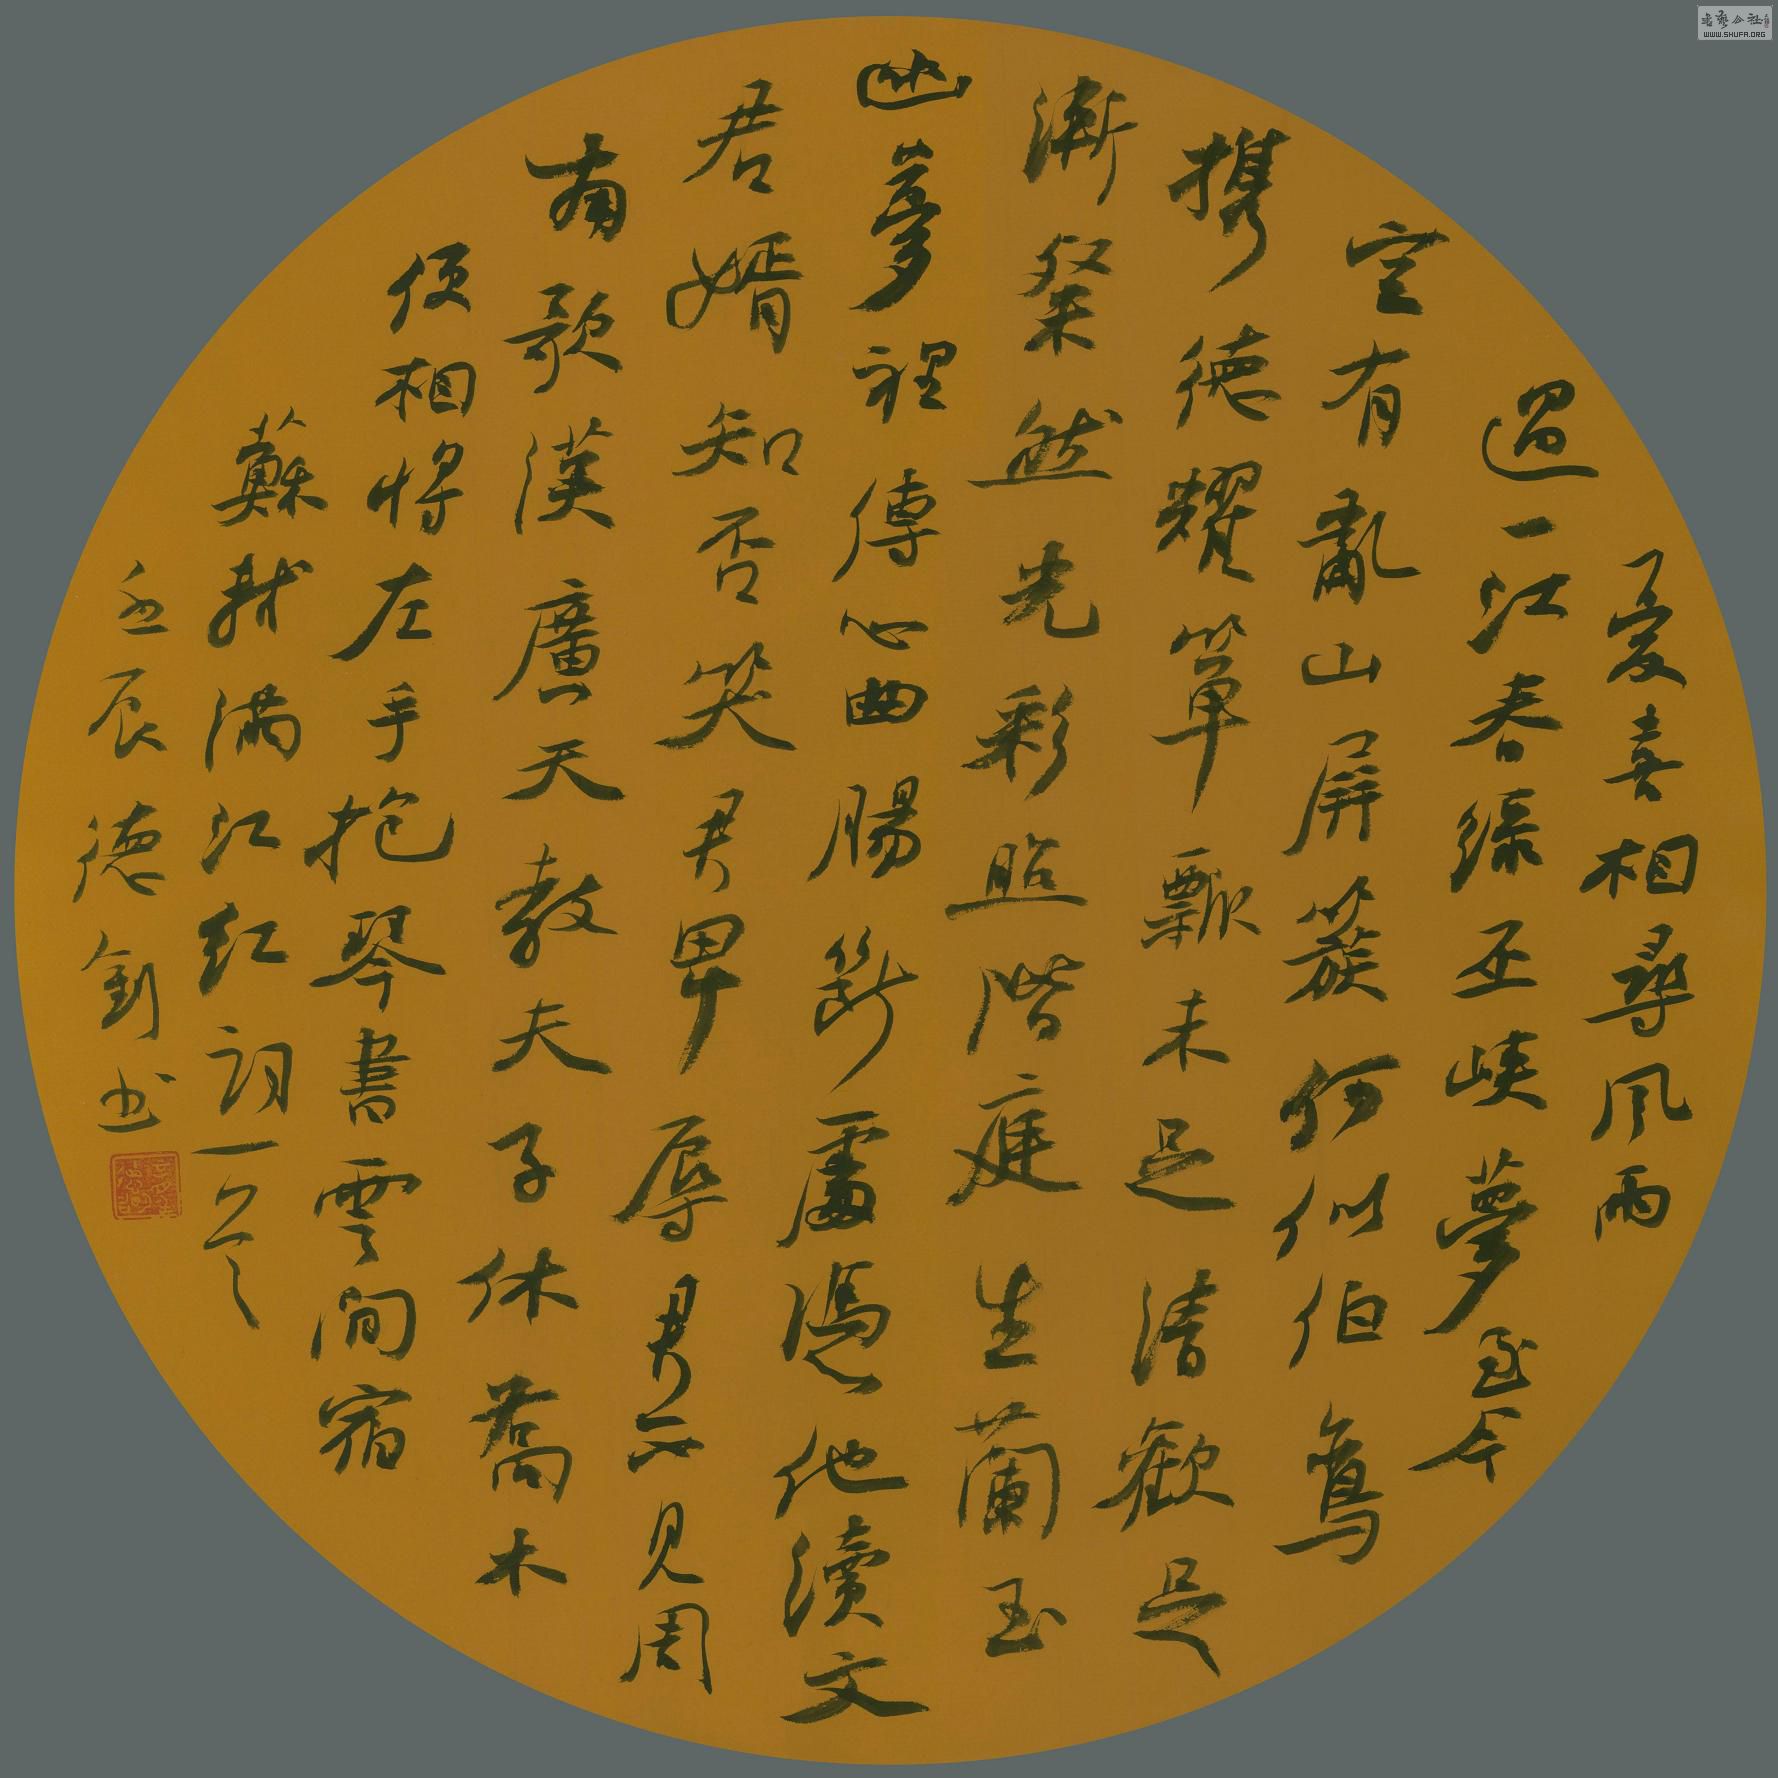 憂喜相尋風雨
過一江春綠巫峽夢至今
空有亂山屏簇何似伯鸞
携德耀箪瓢未足清歡足
漸粲然光彩照階庭生蘭玉
幽夢裡傳心曲腸斷處憑他續文
君婿知否笑君卑辱君不見周
南歌漢廣天教夫子休喬木
便相將左手抱琴書雲間宿
蘇軾滿江紅詞一首
壬辰德釗书
WWW.SHUFA.ORG